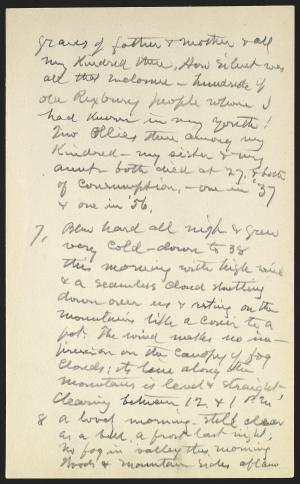 graves of father & mother & all
my Kindred there, How Silent was
all that inclosure - hundreds of
old Roxbury people whom I
had Known in my Youth!
Two Ollies there among my
Kindred - my sister & my
aunt - both died at 27, & both
of Consumption, - one in '37
& one in '56,
7, Blew hard all night & grew
very cold - down to 38
this morning with high wind
& a seamless cloud shutting
down over us & resting on the
mountains like a cover to a
pot. The wind makes no im-
pression on the canopy of fog
Clouds; its line along the
mountains is level & straight.
Clearing between 12 & 1 
8 a lovely morning - still clear
as a bell, a frost last night;
No fog in valley this morning
Woods & mountain sides aflame